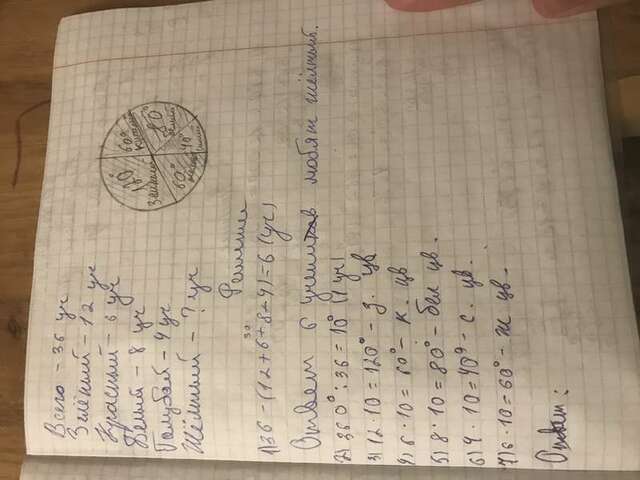 Всего – 36 уч
Зелёный – 12 уч
Красный – 6 уч
Белый – 8 уч
Голубой – 4 уч
Жёлтый – ? уч
120°
зелёный
60°
80°
60°
40°
Решение
30
1) 36 – (12+6+8+4)=6 (уч)
Ответ 6 учеников любят жёлтый.
2) 360° : 36 = 10° (1 уч)
3) 12 · 10 = 120° – з. цв
4) 6 · 10 = 60° – к. цв
5) 8 · 10 = 80° – бел цв.
6) 4 · 10 = 40° – с. цв.
7) 6 · 10 = 60° – ж цв.
Ответ: